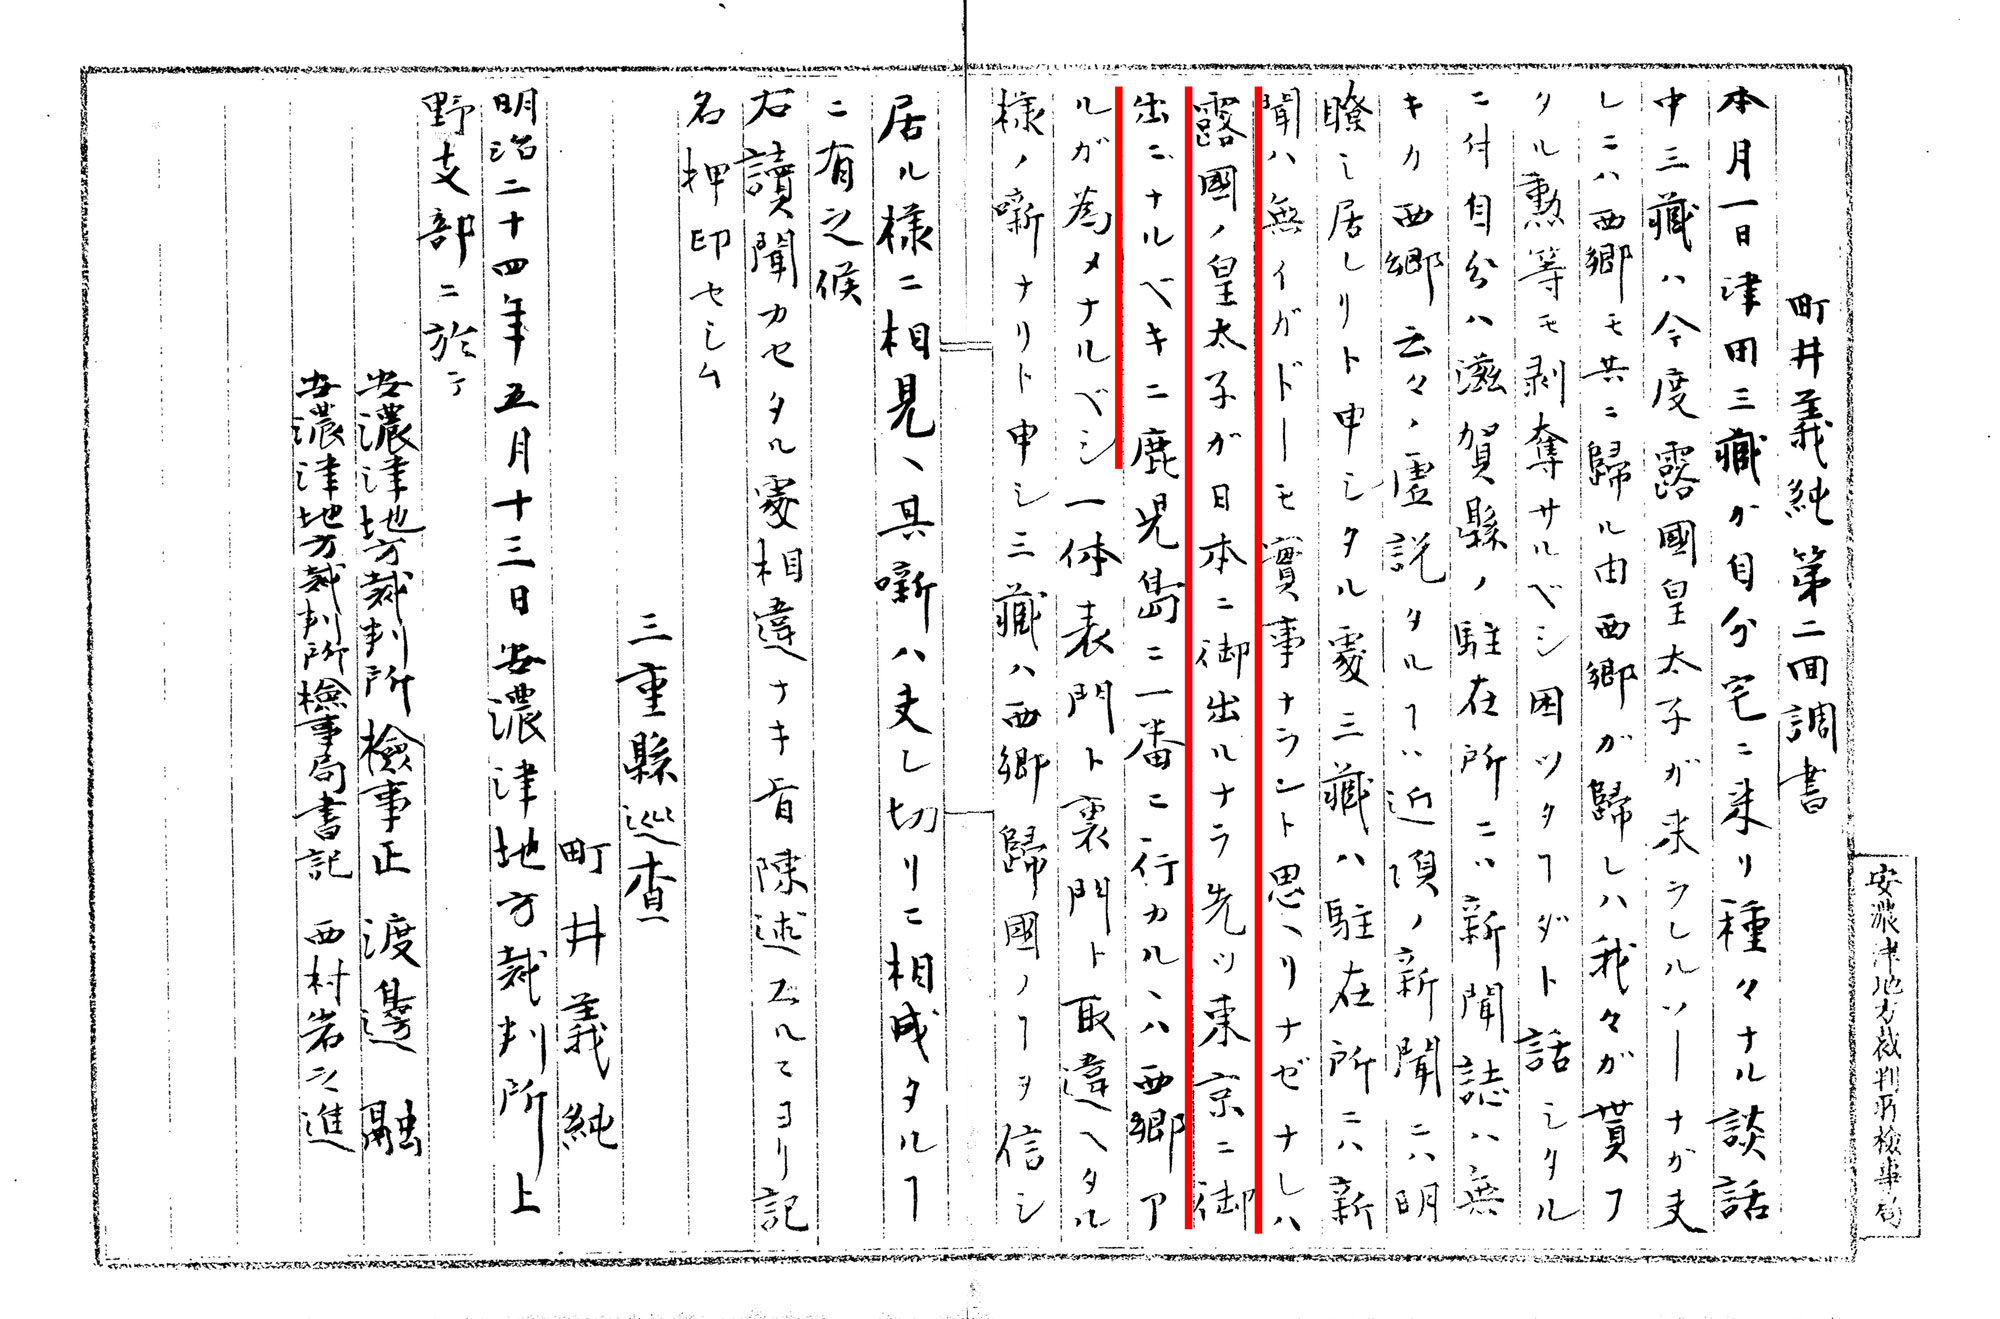 町井義純第二回調書
本月一日津田三藏カ自分宅ニ来リ種々ナル談話
中三藏ハ今度露國皇太子ガ来ラレルソーナガ夫
レニハ西郷モ共ニ歸ル由西郷ガ歸レハ我々ガ貰フ
タル勲等モ剥奪サルベシ困ツタヿダト話シタル
ニ付自分ハ滋賀縣ノ駐在所ニハ新聞誌ハ無
キカ西郷云々ノ虚説タルヿハ近頃ノ新聞ニハ明
瞭シ居レリト申シタル處三藏ハ駐在所ニハ新
聞ハ無イガドーモ實事ナラント思ヘリナゼナレハ
露國ノ皇太子ガ日本ニ御出ルナラ先ツ東京ニ御
出ニナルベキニ鹿児島ニ一番ニ行カルヽハ西郷ア
ルガ為メナルベシ一体表門ト裏門ト取違ヘタル
様ノ噺ナリト申シ三藏ハ西郷歸國ノヿヲ信シ
居ル様ニ相見ヘ其噺ハ夫レ切リニ相成タルヿ
ニ有之候
右讀聞カセタル處相違ナキ旨陳述スルニヨリ記
名押印セシム
三重縣巡査
町井義純
明治二十四年五月十三日安濃津地方裁判所上
野支部ニ於テ
安濃津地方裁判所檢事正 渡邊融
安濃津地方裁判所檢事局書記 西村岩之進
安濃津地方裁判所檢事局